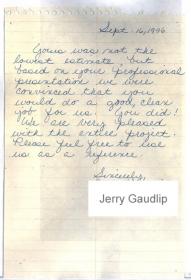 Sept 16, 1996
Yours was not the
lowest estimate, but
based on your professional
presentation we were
convinced that you
would do a good, clean
job for us. You did!
We are very pleased
with the entire project.
Please feel free to use
us as a reference.
Sincerely,
Jerry Gaudlip